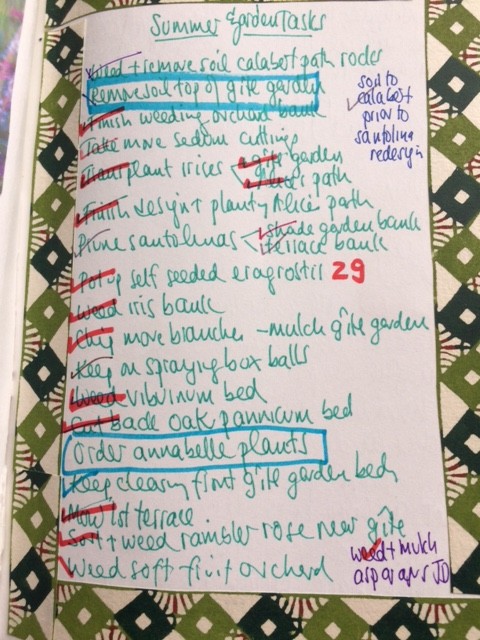 Summer Garden Tasks
Weed + remove soil calabert path rocks
Remove soil top of gite garden
Finish weeding orchard bank
Take more sedum cuttings
Transplant irises < gite garden
path
Finish design + planting Alice path
Prune santolinas < shade garden bank
terrace bank
Pot up self seeded eragrostis 29
Weed iris bank
Chip more branches - mulch gîte garden
Keep on spraying box balls
Weed viburnum bed
Cut back oak pannicum bed
Order annabelle plants
Keep clearing front gîte garden beds
Mow 1st terrace
Sort + weed rambler rose near gîte
Weed soft-fruit orchard
soil to
calabert
prior to
santolina
redesign
weed + mulch
asparagus JD